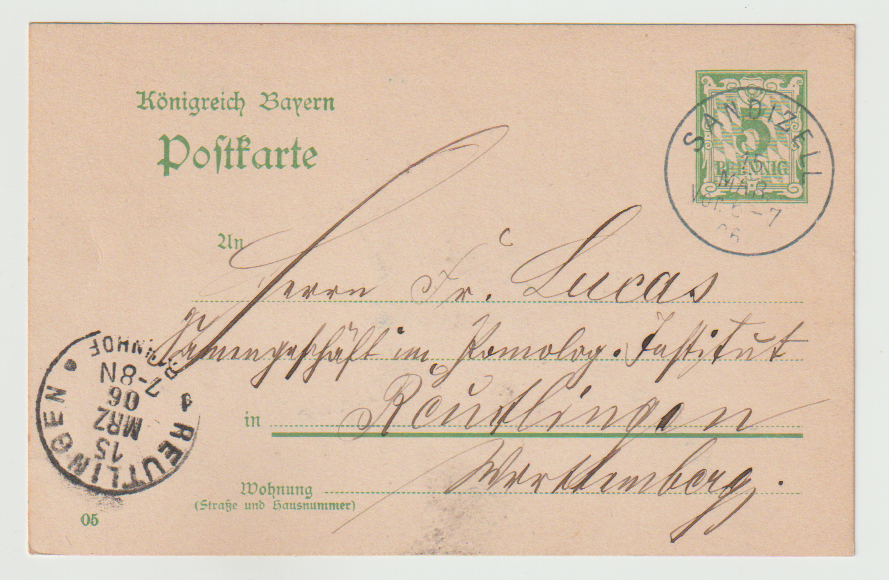 Königreich Bayern
Postkarte
5
PFENNIG
SANDIZELL
15
MAR.
Vor. 6-7
06
An
Herrn Fr. Lucas
Samengeschäft im Pomolog. Institut
in Reutlingen
Württemberg.
Wohnung
(Straße und Hausnummer)
05
REUTLINGEN
BAHNHOF
15
MRZ
06
7-8N